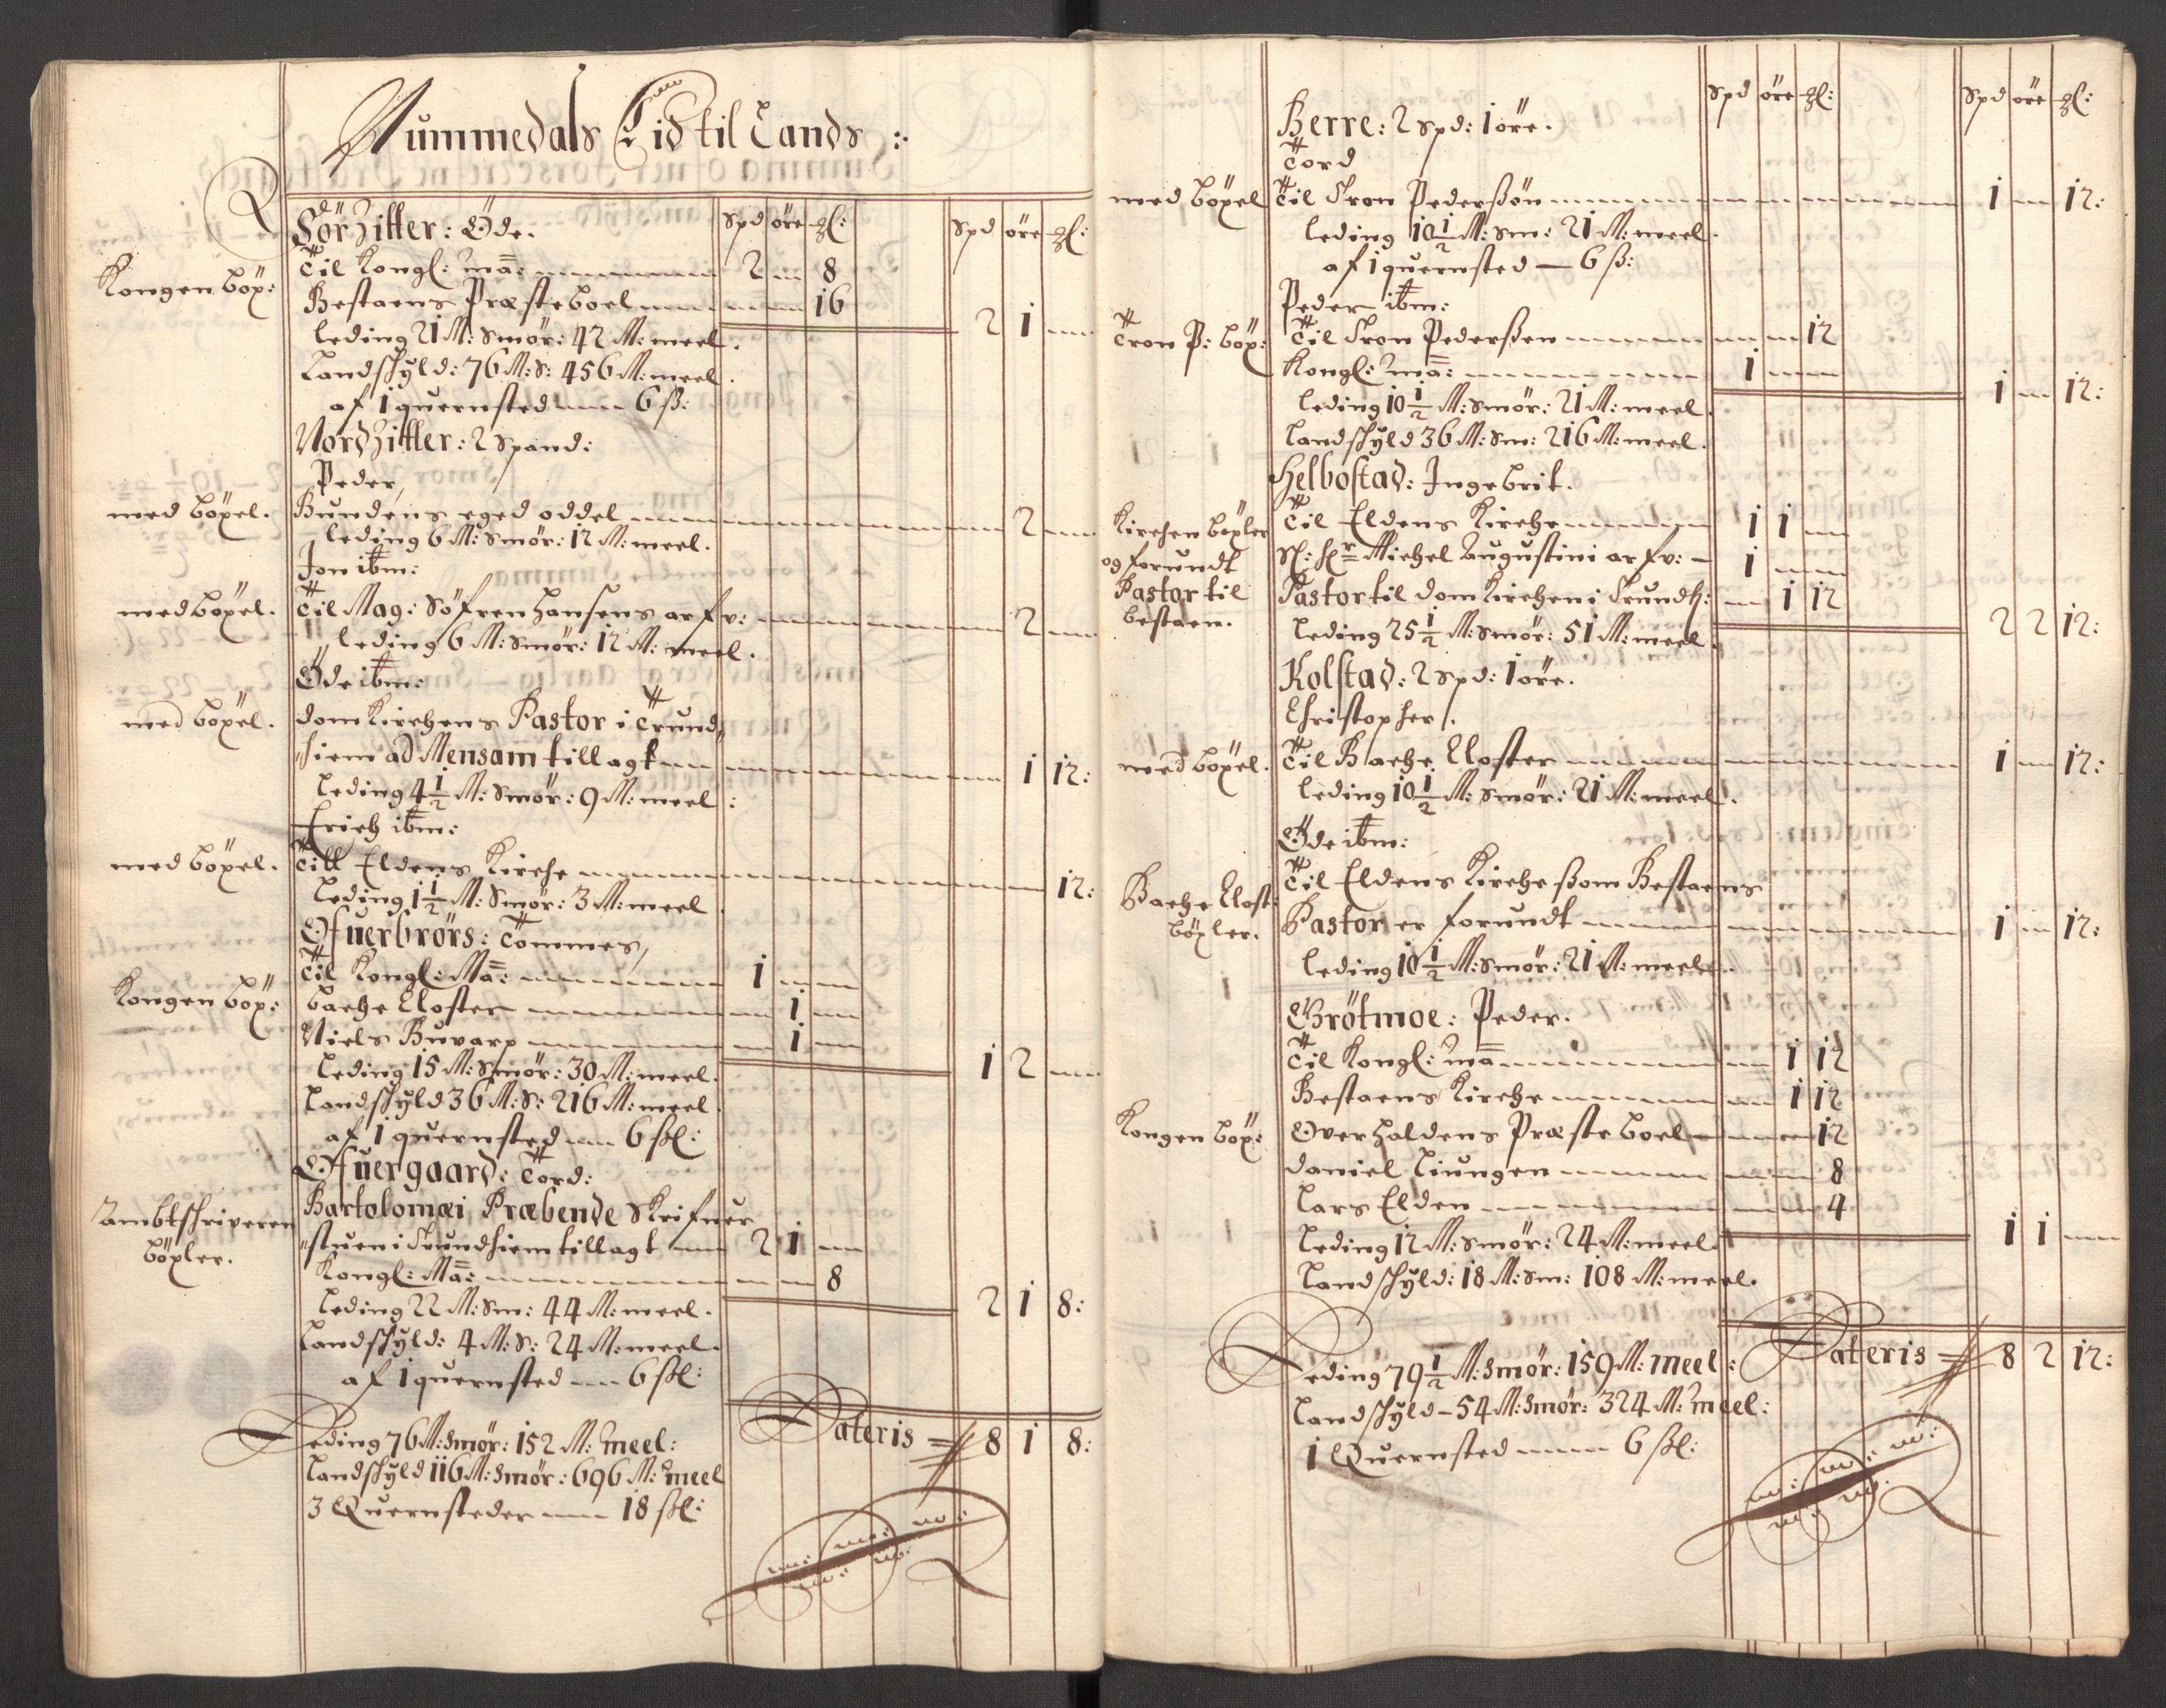 Nummedals Eid til Lands :
Spd öre gl:
Spd öre gl:
Sör Zitter: Öde.
Kongen böx:
Til Kongl: Ma: 2 – 8
Bestaens Præsteboel 16
2 1 –
leding 21 M: Smör: 42 M: meel.
Landschyld: 76 M: S: 456 M: meel.
af 1 quernsted 6 ß:
Nord Zitter: 2 Spand:
Peder,
med böxel. Bundens eged oddel 2 –
leding 6 M: Smör: 12 M: meel.
Jon ibm:
med böxel. Til Mag: Söfren Hansens arfv: 2 –
leding 6 M: Smör: 12 M: meel.
Öde ibm:
med böxel. domKirchens Pastor i Trund„
„hiem ad Mensam tillagt 1 12:
leding 4 1/2 M: Smör: 9 M: meel:
Erich ibm:
med böxel. Till Eldens Kirche 12:
leding 1 1/2 M: Smör: 3 M: meel
Ofuerbrörs: Tommes,
Kongen böx: Til Kongl: Ma: 1 – –
bache Closter 1 –
Niels Buvarp 1 –
1 2 –
leding 15 M: Smör: 30 M: meel.
Landschyld 36 M: S: 216 M: meel
af 1 quernsted 6 ßl:
Ofuergaard: Tord:
Ambtschriveren böxler.
Bartolomæi Præbende Skrifuer
„stuen i Trundhiem tillagt 2 1 –
Kongl: Ma: 8
2 1 8:
leding 22 M: Sm: 44 M: meel.
Landschyld: 4 M: S: 24 M: meel.
af 1 quernsted 6 ßl:
Lateris 8 1 8:
Leding 76 M: Smör: 152 M: meel:
Landschyld 116 M: Smör: 696 M: meel
3 Quernsteder 18 ßl:
Spd öre gl:
Spd öre gl:
Berre: 2 Spd: 1 öre.
Tord
med böxel Til Tron Pederßön 1 – 12:
leding 10 1/2 M: Sm: 21 M: meel.
af 1 quernsted — 6 ß:
Peder ibm:
Tron P: böx: Til Tron Pederßen 12
Kongl: Ma: 1 –
1 – 12:
leding 10 1/2 M: Smör: 21 M: meel
Landschyld 36 M: Sm: 216 M: meel.
Helbostad: Ingebrit.
Kirchen böxler
og forundt
Pastor til
bestaen.
Til Eldens Kirche 1 1 –
Sl: Hr Michel Augustini arfv: 1 –
Pastor til domKirchen i Trundh: 1 12
2 2 12:
leding 25 1/2 M: Smör: 51 M: meel
Kolstad: 2 Spd: 1 öre.
Christopher.
med böxel. Til Bache Closter 1 – 12:
leding 10 1/2 M: Smör: 21 M: meel.
Öde ibm:
Bache Clost: böxler.
Til Eldens Kirche ßom Bestaens
Pastor er forundt 1 – 12:
leding 10 1/2 M: Smör: 21 M: meel.
Grötmoe: Peder.
Til Kongl: Ma 1 12
Bestaens Kirche 1 12
Kongen böx: Overhaldens Præsteboel 12
Daniel Liungen 8
Lars Elden 4
1 1 –
leding 12 M: Smör: 24 M: meel
Landschyld: 18 M: Sm: 108 M: meel.
Lateris 8 2 12:
Leding 79 1/2 M: Smör: 159 M: meel:
Landschyld – 54 M: Smör: 324 M: meel:
1 Quernsted 6 ßl: